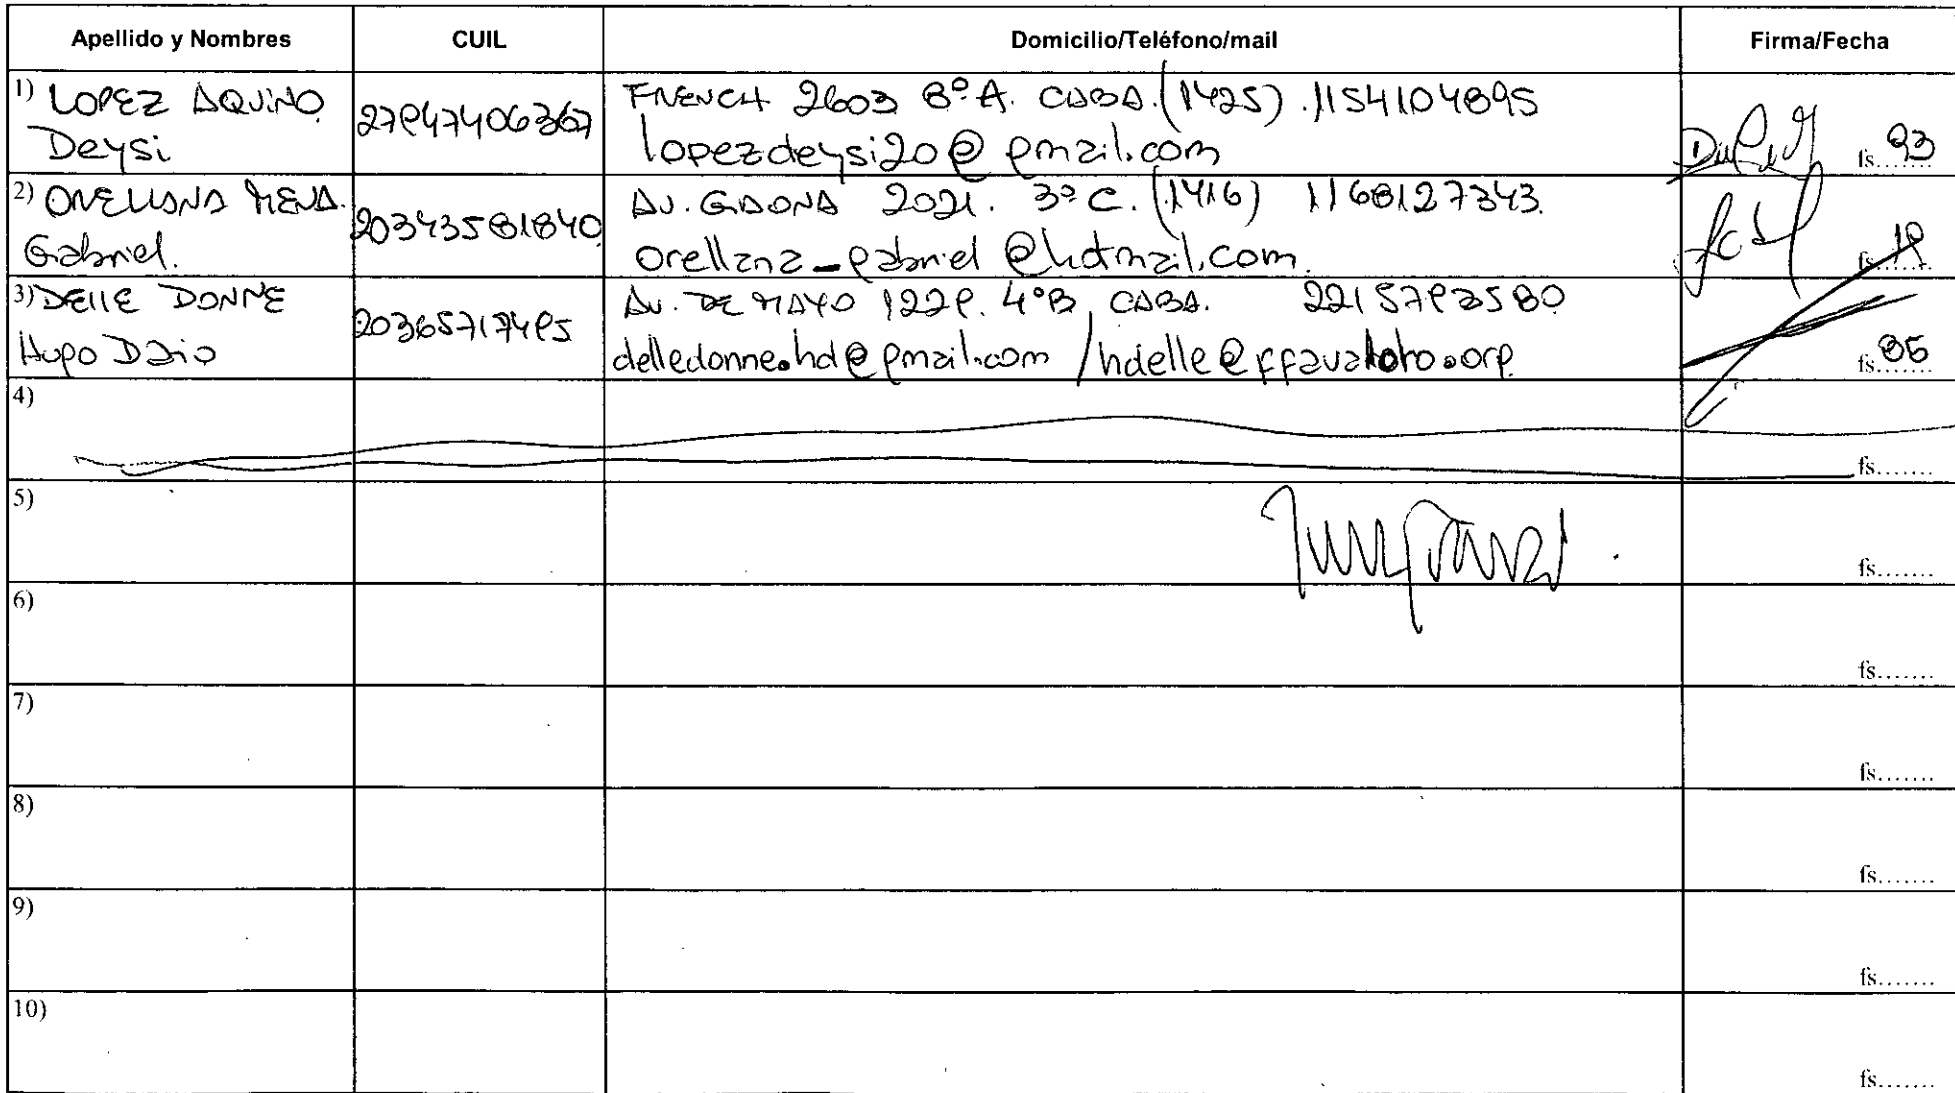 Apellido y Nombres CUIL Domicilio/Teléfono/mail Firma/Fecha
1) LOPEZ AQUINO 27947406367 FRENCH 2603 8º A. CABA. (1425). 1154104895
Deysi lopezdeysi20@gmail.com fs....... 93
2) ORELLANA MENA. 20343581840 AV. GAONA 2021. 3º C. (1416) 1168127343.
Gabriel. orellana_gabriel@hotmail.com. fs....... 19
3) DELLE DONNE 20365717495 AV. DE MAYO 1229. 4ºB, CABA. 2215793580
Hugo Dario delledonne.hd@gmail.com / hdelle@ffavaloro.org fs....... 86
4)
fs.......
5)
fs.......
6)
fs.......
7)
fs.......
8)
fs.......
9)
fs.......
10)
fs.......